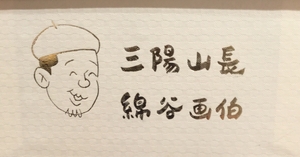 三陽山長
綿谷画伯